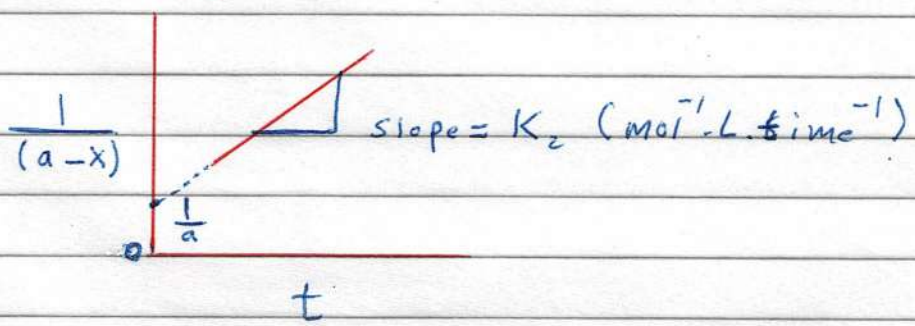 1
(a-x)
slope = K₂ (mol⁻¹.L.time⁻¹)
1
a
0
t